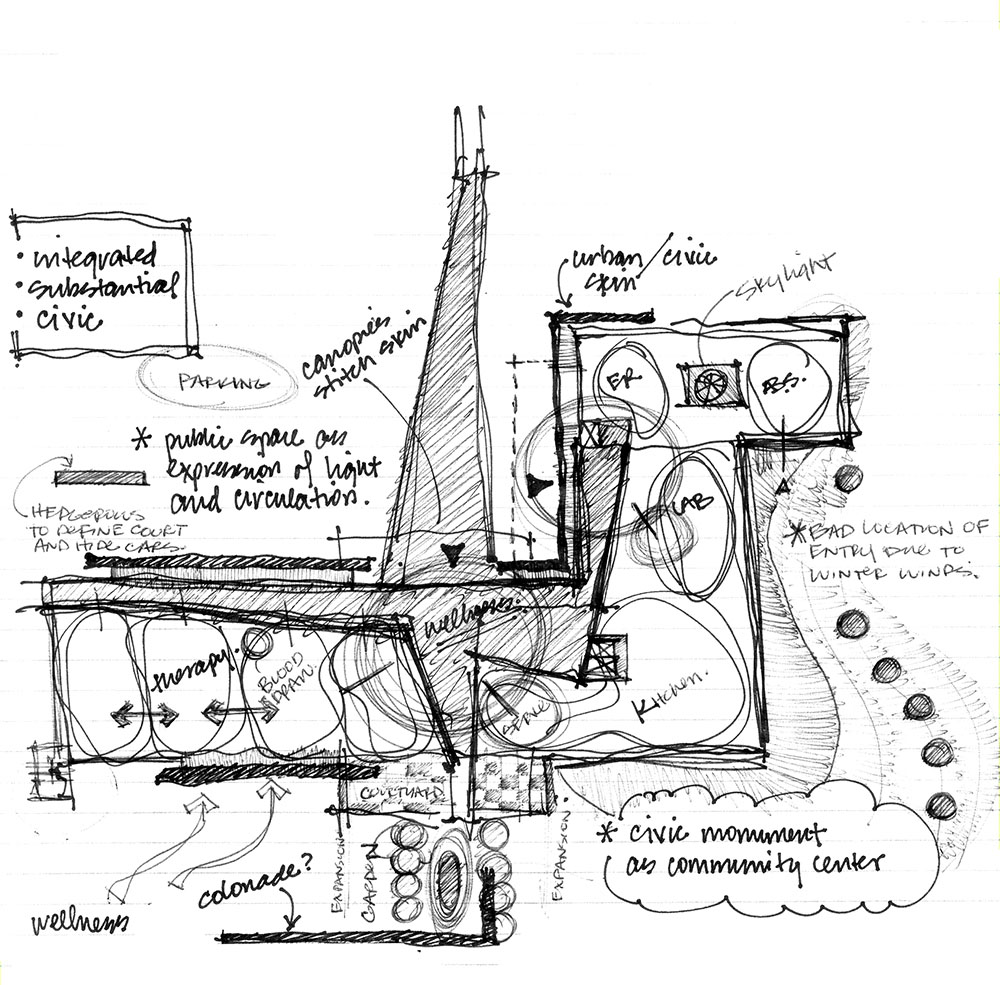 • integrated
• substantial
• civic
PARKING
canopies
stitch skin
urban/civic
skin
skylight
* public space as
expression of light
and circulation.
HEDGEROWS
TO DEFINE COURT
AND HIDE CARS.
ER
LAB
* BAD LOCATION OF
ENTRY DUE TO
WINTER WINDS.
wellness.
therapy.
BLOOD
DRAW.
Kitchen.
COURTYARD
EXPANSION
GARDEN
EXPANSION
* civic monument
as community center
colonade?
wellness